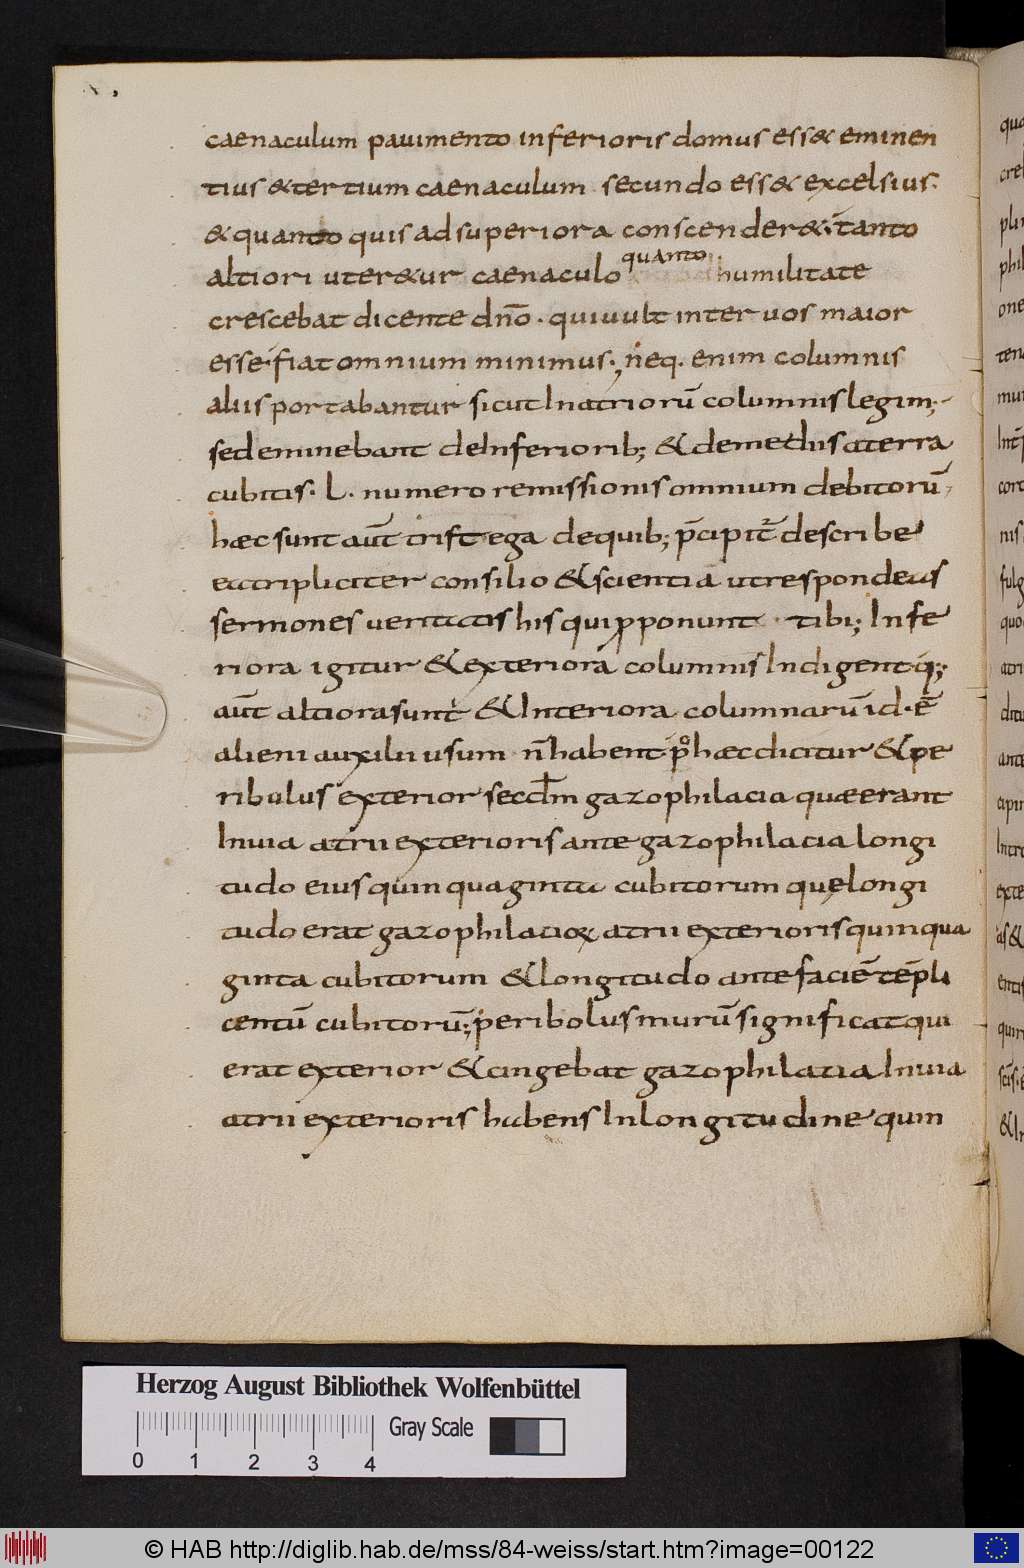 caenaculum pauimento inferioris domus ess& eminen
tius &tertium caenaculum secundo ess& excelsius.
& quanto quis ad superiora conscender&. tanto
altiori uter&ur caenaculo quanto humilitate
crescebat dicente dn̄o. qui uult inter uos maior
esse. fiat omnium minimus. neq. enim columnis
aliis portabantur sicut In atriorū columnis legim;
sed eminebant de Inferiorib; & de mediis a terra
cubitis. L. numero remissionis omnium debitorū
haec sunt aūt trist ega de quib; p̄cipit̄ describe
ea tripliciter consilio & scientia ut respondeas
sermones ueritatis his qui ꝓponunt tibi; Infe
riora igitur & exteriora columnis Indigent q;
aūt altiora sunt & Interiora columnarū id. ē
alieni auxilii usum n̄ habent p̊ haec dicitur & pe
ribulus exterior secdm̄ gazophilacia quae erant
In uia atrii exterioris ante gazophilacia longi
tudo eius quinquaginta cubitorum quę longi
tudo erat gazophilacioꝝ atrii exterioris quinqua
ginta cubitorum & longitudo ante faciē tēpli
centū cubitorū; peribolus murū significat qui
erat exterior & cingebat gazophilacia In uia
atrii exterioris habens In longitudine quin
qua
cre
plu
phil
one
mu
cort
nis
fulg
quo
atri
ditu
ante
cipi
exte
as &
entis
quin
& In
Herzog August Bibliothek Wolfenbüttel
Gray Scale
0 1 2 3 4
© HAB http://diglib.hab.de/mss/84-weiss/start.htm?image=00122